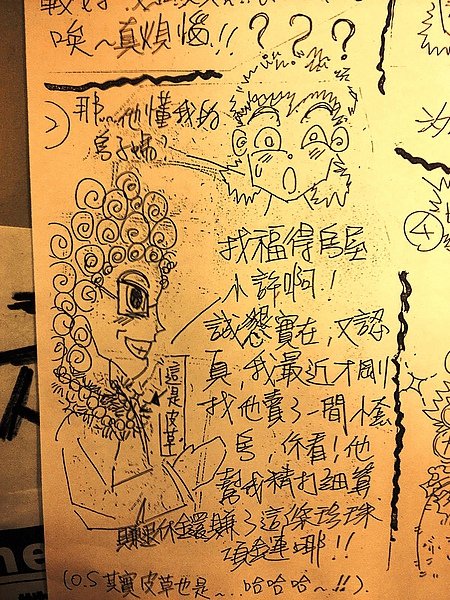 唉～真煩惱!!???
那～他懂我的
房子嗎?
找福得房屋
小許啊!
誠懇實在,又認
真,我最近才剛
找他賣了一間小套
房,你看!他
幫我精打細算
賺退休金還賺了這條珍珠
項鍊哪!!
這是皮草
(O.S其實皮草也是～...哈哈哈～!!)
4